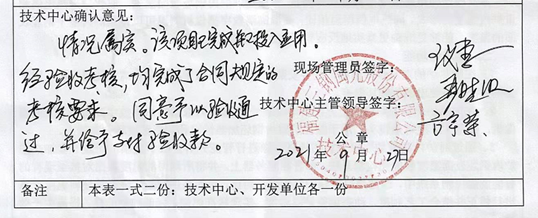 技术中心确认意见：
情况属实。该项目已完成并投入使用。
经验收考核，均完成了合同规定的
考核要求。同意予以验收通
过，并给予支付验收款。
现场管理员签字：
技术中心主管领导签字：
公章
2021年9月2日
备注 本表一式二份：技术中心、开发单位各一份